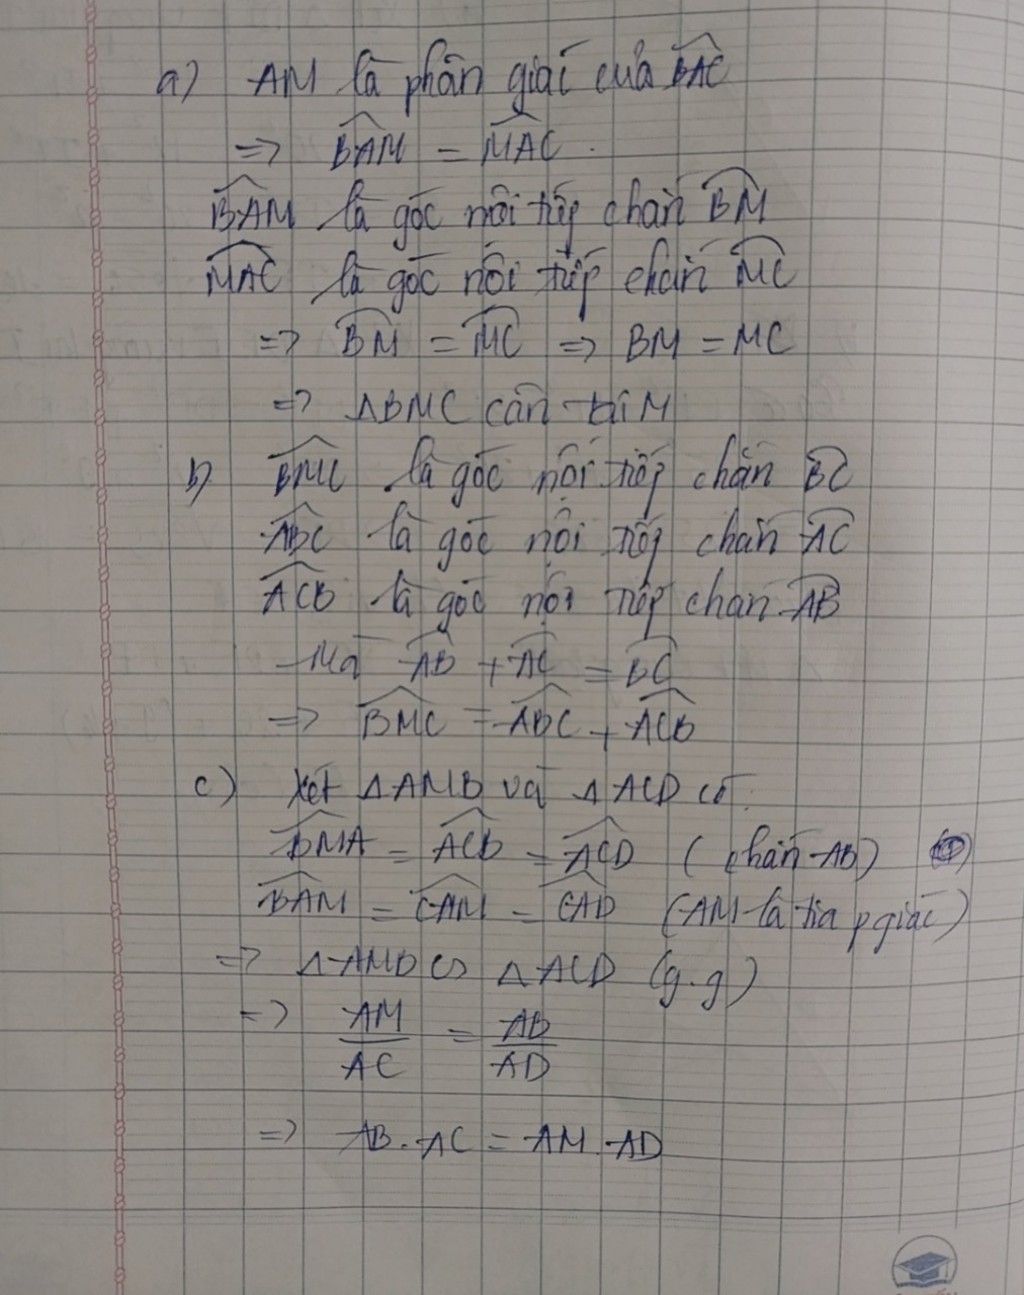 a) AM là phân giác của \widehat{BAC}
=> \widehat{BAM} = \widehat{MAC}.
\widehat{BAM} là góc nội tiếp chắn \overset{\frown}{BM}
\widehat{MAC} là góc nội tiếp chắn \overset{\frown}{MC}
=> \overset{\frown}{BM} = \overset{\frown}{MC} => BM = MC
=> ΔBMC cân tại M
b) \widehat{BMC} là góc nội tiếp chắn \overset{\frown}{BC}
\widehat{ABC} là góc nội tiếp chắn \overset{\frown}{AC}
\widehat{ACB} là góc nội tiếp chắn \overset{\frown}{AB}
Mà \overset{\frown}{AB} + \overset{\frown}{AC} = \overset{\frown}{BC}
=> \widehat{BMC} = \widehat{ABC} + \widehat{ACB}
c) Xét ΔAMB và ΔACD có:
\widehat{BMA} = \widehat{ACB} = \widehat{ACD} (chắn AB)
\widehat{BAM} = \widehat{CAM} = \widehat{CAD} (AM là tia p giác)
=> ΔAMB ∽ ΔACD (g.g)
=> \frac{AM}{AC} = \frac{AB}{AD}
=> AB.AC = AM.AD